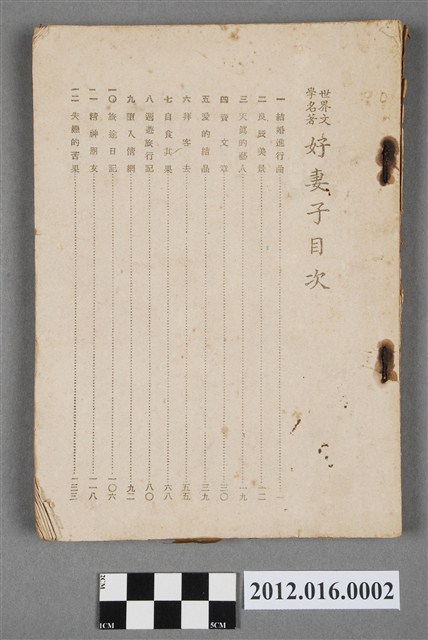 世界文
學名著
好妻子目次
一 結婚進行曲 一
二 良辰美景 一二
三 天真的藝人 一九
四 賣文章 三〇
五 愛的結晶 三九
六 拜客去 五五
七 自食其果 六八
八 週遊旅行記 八〇
九 墮入情網 九二
一〇 旅途日記 一〇六
一一 精神朋友 一一八
一二 失戀的苦果 一三三
2CM
1CM
5CM
2012.016.0002